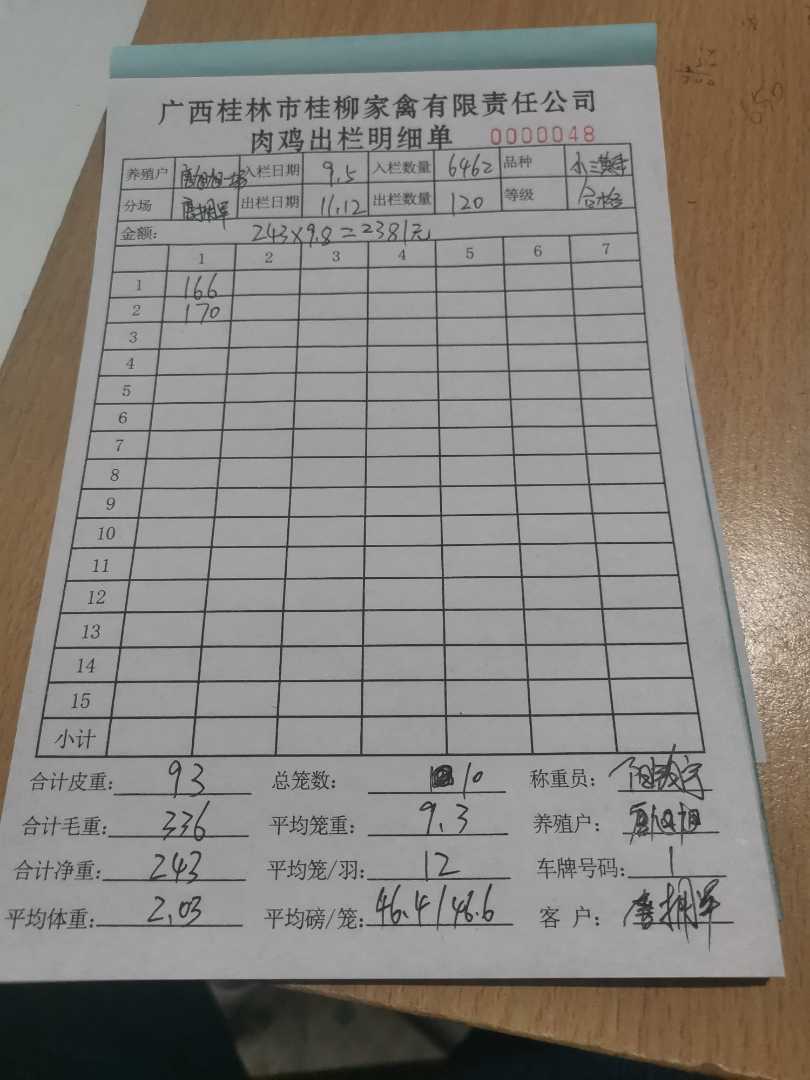 广西桂林市桂柳家禽有限责任公司
肉鸡出栏明细单 0000048
养殖户 入栏日期 9.5 入栏数量 6462 品种
分场 唐拥军 出栏日期 11.12 出栏数量 120 等级 合格
金额: 243×9.8=2381元
1 2 3 4 5 6 7
1 166
2 170
3
4
5
6
7
8
9
10
11
12
13
14
15
小计
合计皮重: 93 总笼数: 10 称重员:
合计毛重: 336 平均笼重: 9.3 养殖户:
合计净重: 243 平均笼/羽: 12 车牌号码: 1
平均体重: 2.03 平均磅/笼: 46.4/48.6 客户: 唐拥军